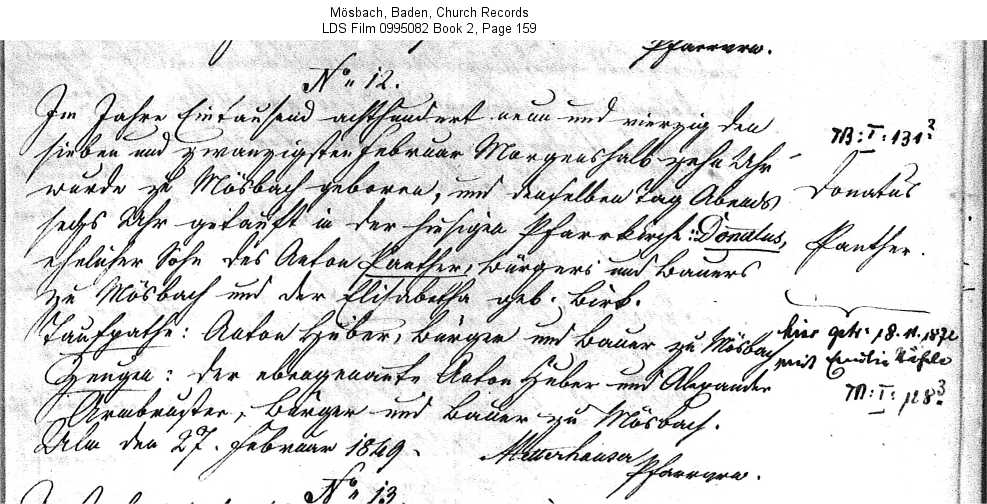 Mösbach, Baden, Church Records
LDS Film 0995082 Book 2, Page 159
Pfarrvrw.
No 12.
Im Jahre Eintausend achthundert neun und vierzig den
sieben und zwanzigsten Februar Morgens halb zehn Uhr
wurde zu Mösbach geboren, und denselben Tag Abends
sechs Uhr getauft in der hiesigen Pfarrkirche: Donatus,
ehelicher Sohn des Anton Panther, Bürgers und Bauers
zu Mösbach und der Elisabetha geb. Birk.
Taufpathe: Anton Huber, Bürger und Bauer zu Mösbach
Zeugen: der obengenannte Anton Huber und Alexander
Armbruster, Bürger und Bauer zu Mösbach.
Ulm den 27. Februar 1849.
Pfarrvrw.
B: I: 131
Donatus
Panther.
hier getr. 18. 11. 187
mit
M: I: 128
No 13